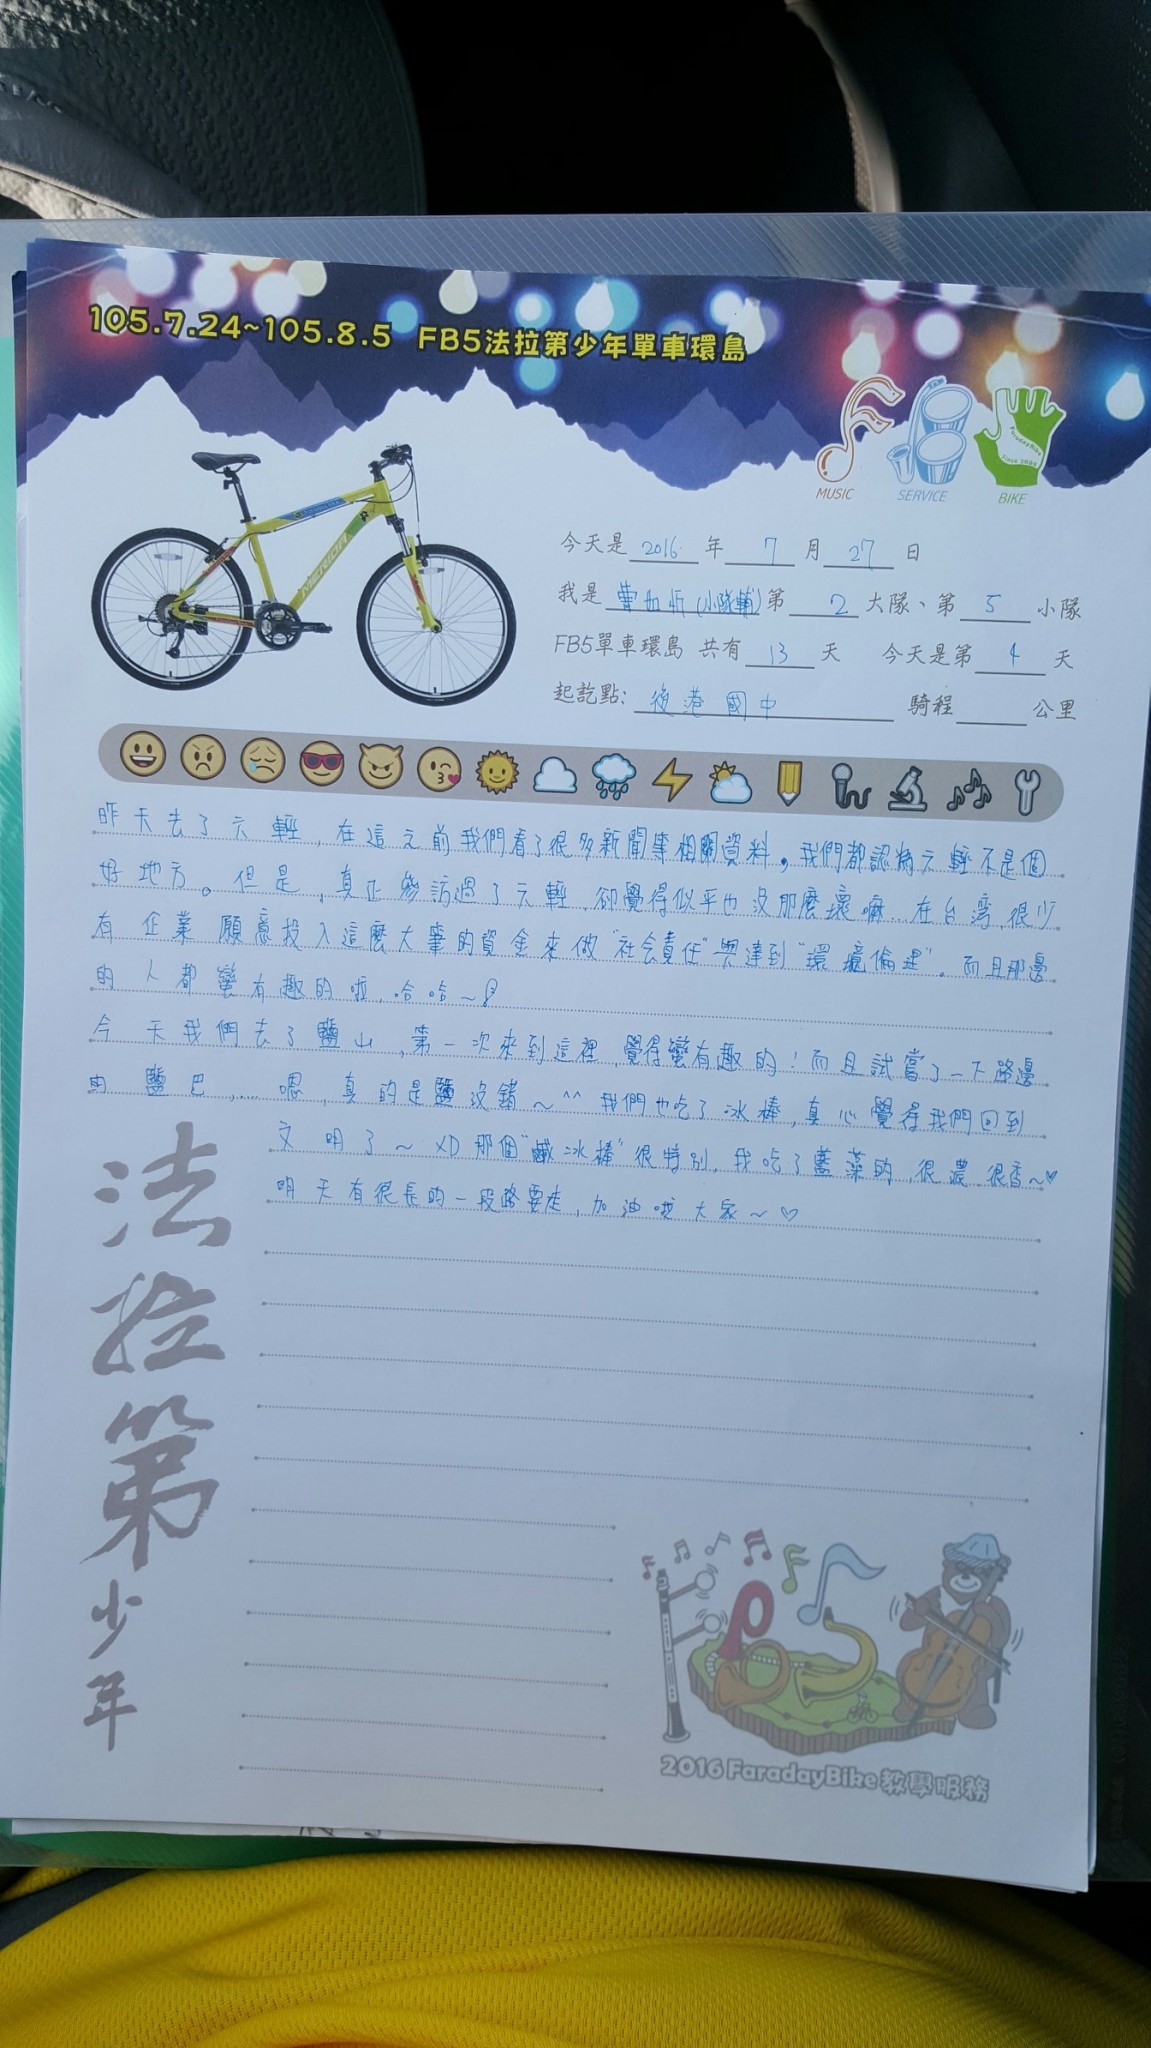 105.7.24~105.8.5 FB5法拉第少年單車環島
MUSIC SERVICE BIKE
FaradayBike
今天是 2016 年 7 月 27 日
我是 (小隊輔) 第 2 大隊、第 5 小隊
FB5單車環島 共有 13 天 今天是第 4 天
起訖點: 後港國中 騎程 公里
MERIDA
昨天去了六輕,在這之前我們看了很多新聞等相關資料,我們都認為六輕不是個
好地方。但是,真正參訪過了六輕,卻覺得似乎也沒那麼壞嘛…在台灣,很少
有企業願意投入這麼大筆的資金來做"社会責任"與達到"環境倫理"。而且那邊
的人都蠻有趣的啦,哈哈~
今天我們去了鹽山,第一次來到這裡,覺得蠻有趣的!而且試嘗了一下路邊
的鹽巴,……嗯,真的是鹽沒錯~^^我們也吃了冰棒,真心覺得我們回到
文明了~XD那個"鹹冰棒"很特別,我吃了的,很濃很香~♡
明天有很長的一段路要走,加油啦大家~♡
法拉第少年
2016 FaradayBike 教學服務